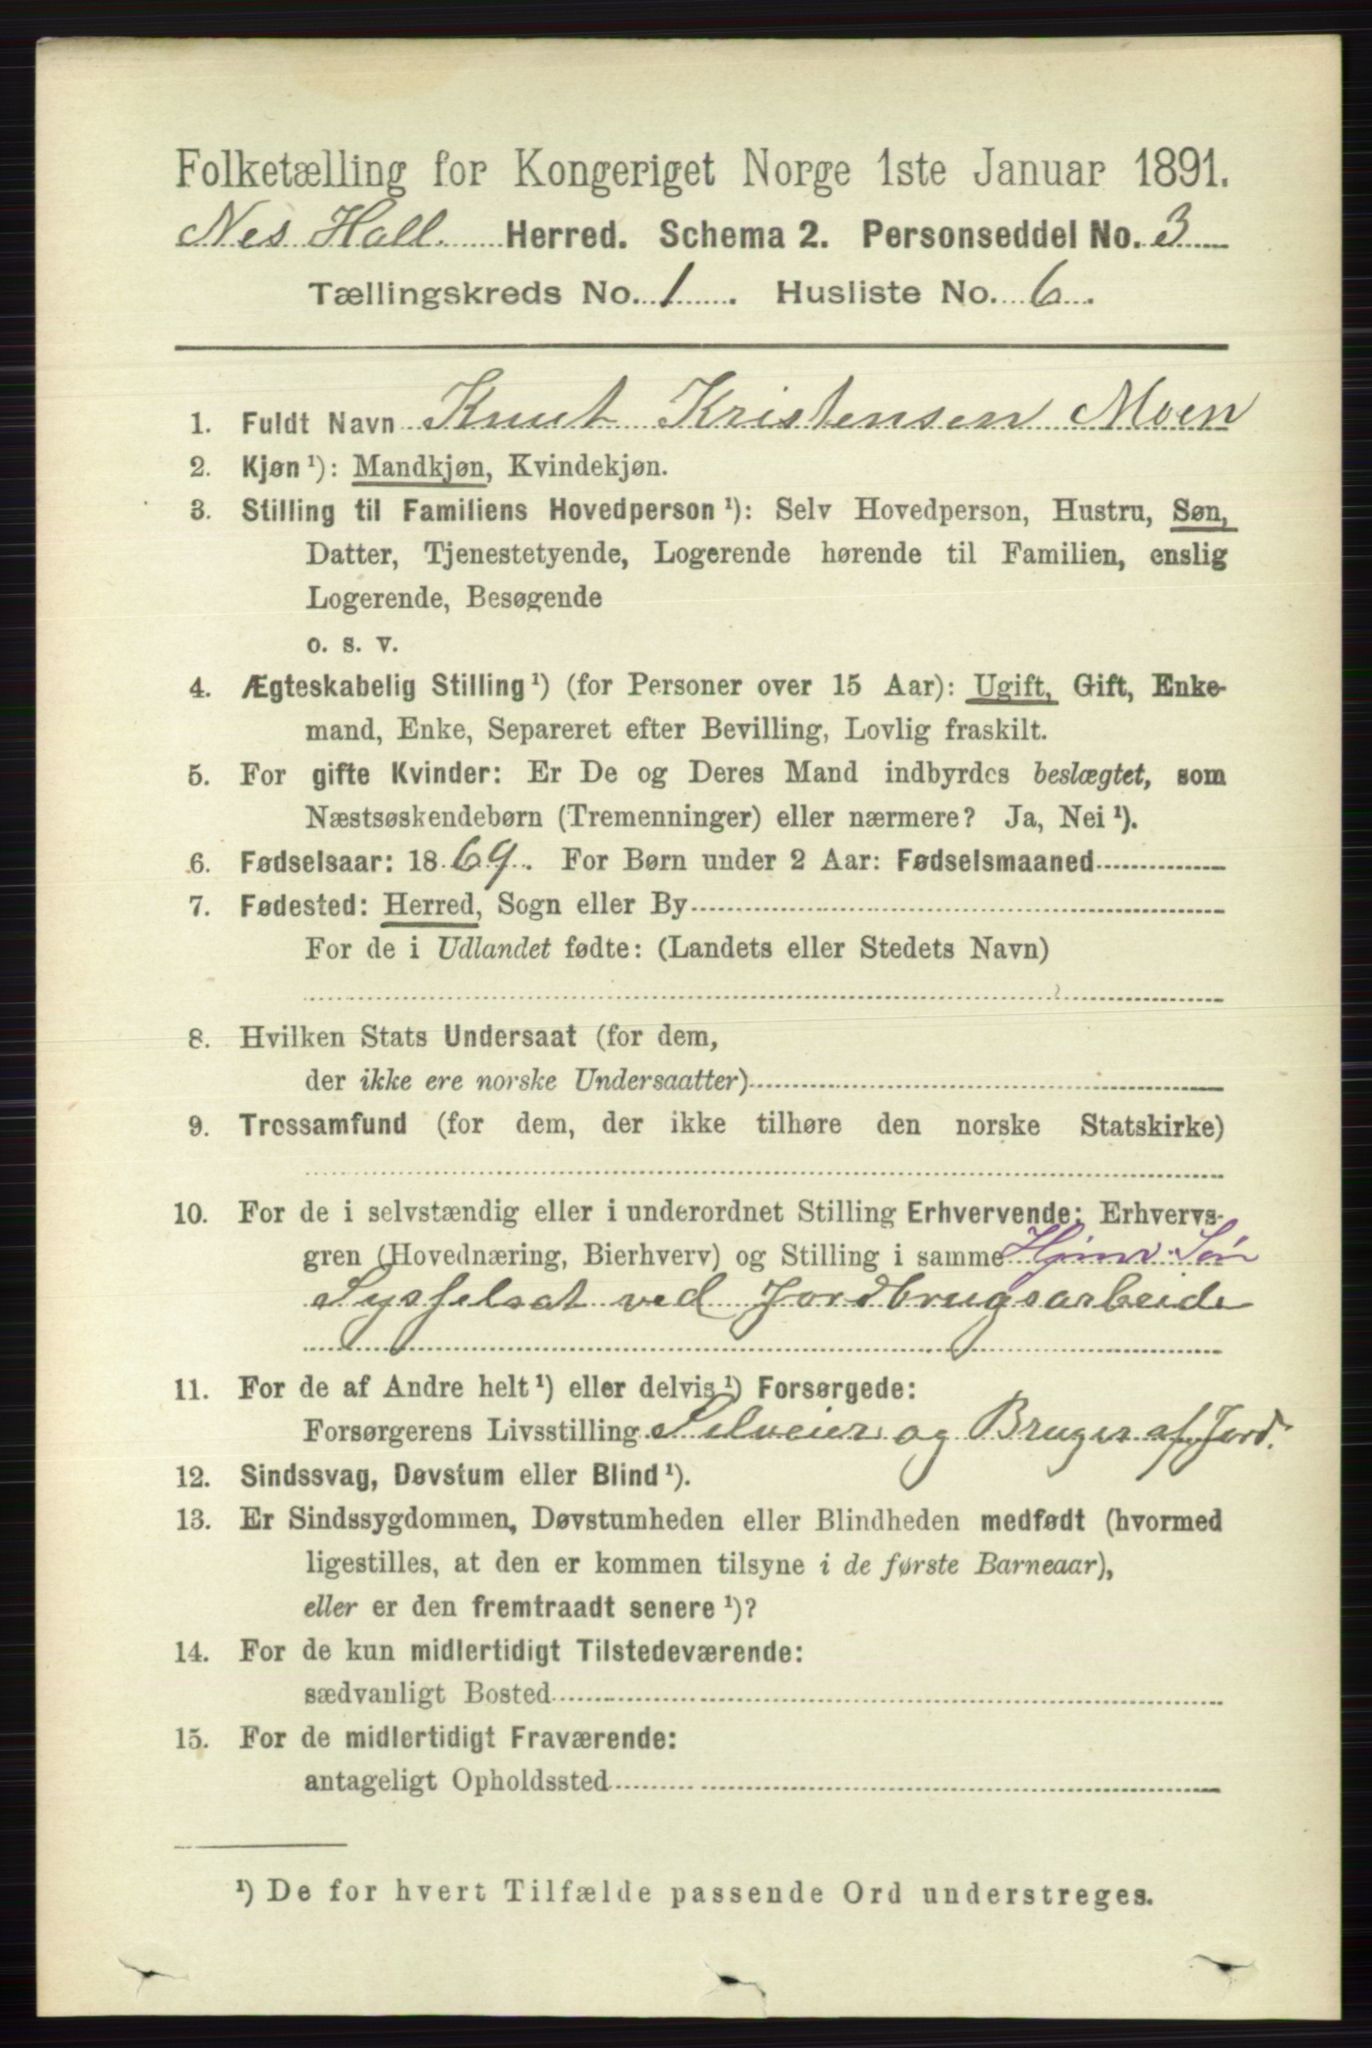 Folketælling for Kongeriget Norge 1ste Januar 1891.
Nes Hall. Herred. Schema 2. Personseddel No. 3
Tællingskreds No. 1. Husliste No. 6.
1. Fuldt Navn Knut Kristensen Moen
2. Kjøn ¹): Mandkjøn, Kvindekjøn.
3. Stilling til Familiens Hovedperson ¹): Selv Hovedperson, Hustru, Søn,
Datter, Tjenestetyende, Logerende hørende til Familien, enslig
Logerende, Besøgende
o. s. v.
4. Ægteskabelig Stilling ¹) (for Personer over 15 Aar): Ugift, Gift, Enke-
mand, Enke, Separeret efter Bevilling, Lovlig fraskilt.
5. For gifte Kvinder: Er De og Deres Mand indbyrdes beslægtet, som
Næstsøskendebørn (Tremenninger) eller nærmere? Ja, Nei ¹).
6. Fødselsaar: 1869. For Børn under 2 Aar: Fødselsmaaned
7. Fødested: Herred, Sogn eller By
For de i Udlandet fødte: (Landets eller Stedets Navn)
8. Hvilken Stats Undersaat (for dem,
der ikke ere norske Undersaatter)
9. Trossamfund (for dem, der ikke tilhøre den norske Statskirke)
10. For de i selvstændig eller i underordnet Stilling Erhvervende: Erhvervs-
gren (Hovednæring, Bierhverv) og Stilling i samme Hjmv. Søn
Sysselsat ved Jordbrugsarbeide
11. For de af Andre helt ¹) eller delvis ¹) Forsørgede:
Forsørgerens Livsstilling Selveier og Bruger af Jord.
12. Sindssvag, Døvstum eller Blind ¹).
13. Er Sindssygdommen, Døvstumheden eller Blindheden medfødt (hvormed
ligestilles, at den er kommen tilsyne i de første Barneaar),
eller er den fremtraadt senere ¹)?
14. For de kun midlertidigt Tilstedeværende:
sædvanligt Bosted
15. For de midlertidigt Fraværende:
antageligt Opholdssted
¹) De for hvert Tilfælde passende Ord understreges.